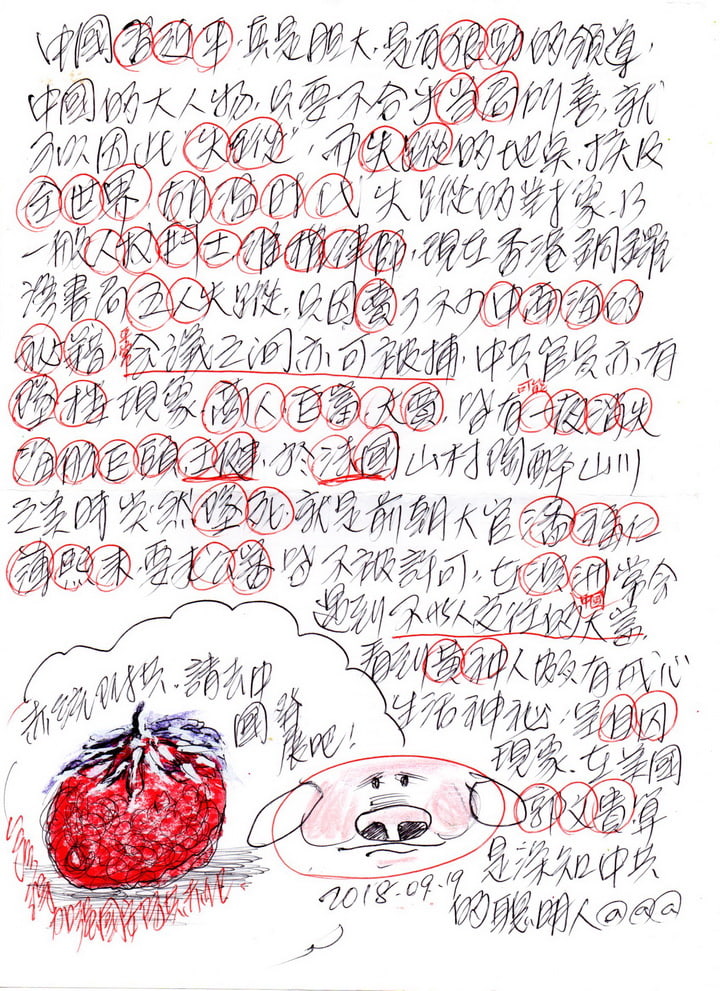 中國習近平,真是胆大,是有狠勁的領導,
中國的大人物,只要不合乎當局所喜,就
可以因此"失蹤",而失蹤的地点,擴及
全世界,胡濫时代失蹤的對象,乃
一般人权鬥士,維權律師,現在香港銅鑼
灣書局五人失蹤,只因賣了不少中南海的
秘籍,会議之间亦可被捕,中共官員亦有
墜楼現象,商人,巨富,大賈,皆有可能一夜消失
海航巨頭,王健,於法國山村陶醉山川
之美時突然墜死,就是前朝大官潘
薄熙来要求公審皆不被許可,在澳洲常会
遇到不与人交往的中國大富,
看到黃种人的有戒心
生活神祕,呈自囚
現象,在美國
郭文貴算
是深知中共
的聰明人@@@
請去中
國發
展吧!
2018-09-19